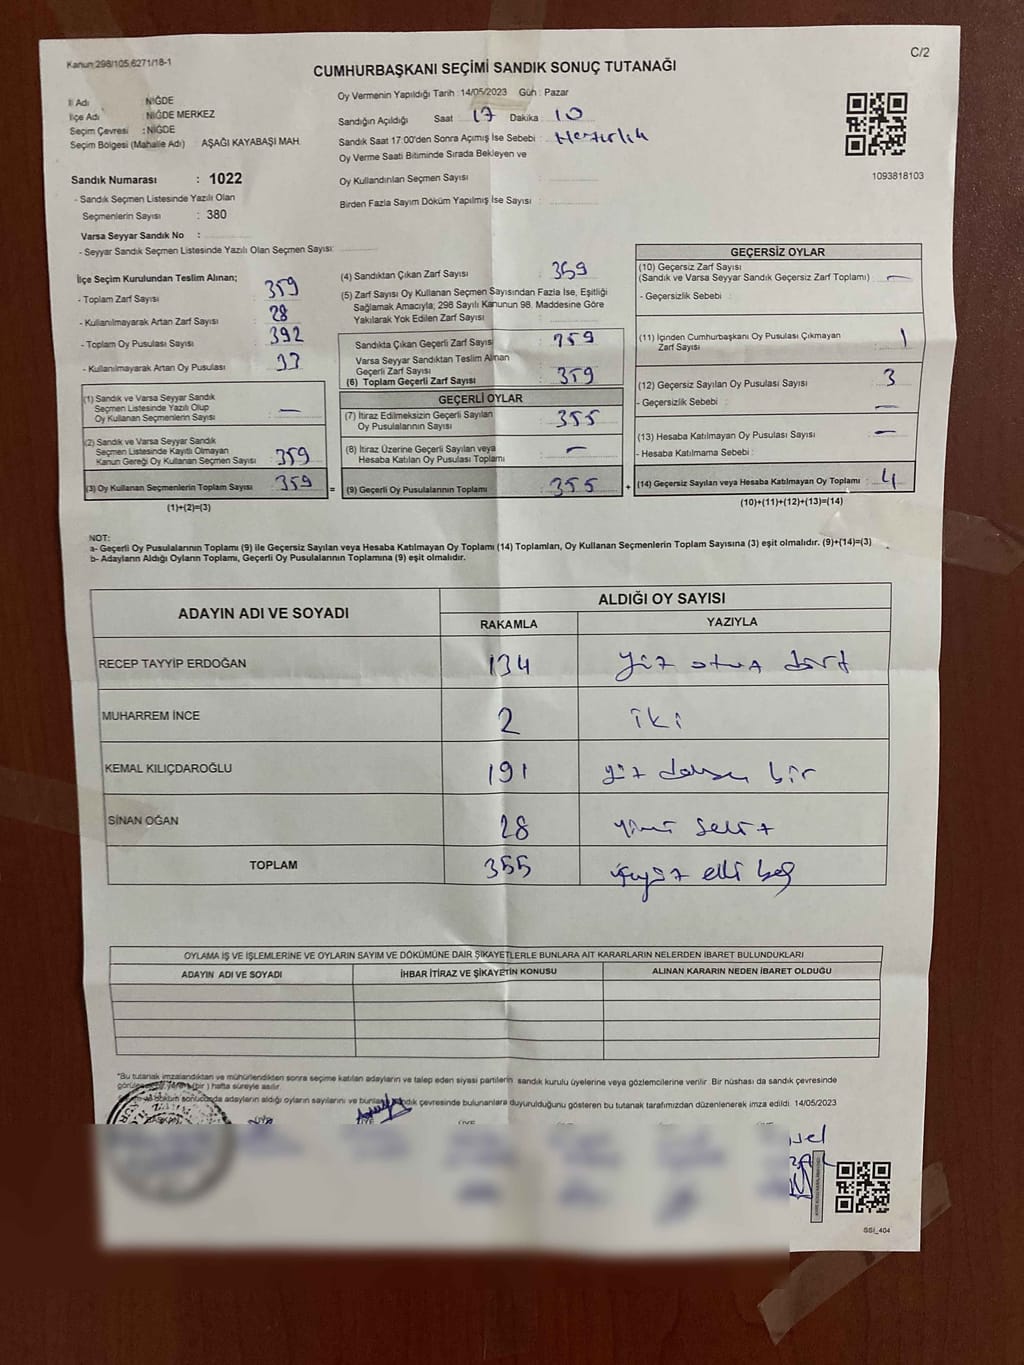 Kanun:298/105,6271/18-1
C/2
CUMHURBAŞKANI SEÇİMİ SANDIK SONUÇ TUTANAĞI
İl Adı : NİĞDE
İlçe Adı : NİĞDE MERKEZ
Seçim Çevresi : NİĞDE
Seçim Bölgesi (Mahalle Adı) AŞAĞI KAYABAŞI MAH.
Oy Vermenin Yapıldığı Tarih : 14/05/2023 Gün : Pazar
Sandığın Açıldığı Saat 17 Dakika 10
Sandık Saat 17:00'den Sonra Açımış İse Sebebi : Hazırlık
Oy Verme Saati Bitiminde Sırada Bekleyen ve
Oy Kullandırılan Seçmen Sayısı :
Birden Fazla Sayım Döküm Yapılmış İse Sayısı :
1093818103
Sandık Numarası : 1022
- Sandık Seçmen Listesinde Yazılı Olan
Seçmenlerin Sayısı : 380
Varsa Seyyar Sandık No :
- Seyyar Sandık Seçmen Listesinde Yazılı Olan Seçmen Sayısı:
İlçe Seçim Kurulundan Teslim Alınan;
- Toplam Zarf Sayısı : 359
- Kullanılmayarak Artan Zarf Sayısı : 28
- Toplam Oy Pusulası Sayısı : 392
- Kullanılmayarak Artan Oy Pusulası : 33
(1) Sandık ve Varsa Seyyar Sandık
Seçmen Listesinde Yazılı Olup
Oy Kullanan Seçmenlerin Sayısı : —
(2) Sandık ve Varsa Seyyar Sandık
Seçmen Listesinde Kayıtlı Olmayan
Kanun Gereği Oy Kullanan Seçmen Sayısı : 359
(3) Oy Kullanan Seçmenlerin Toplam Sayısı : 359 =
(1)+(2)=(3)
(4) Sandıktan Çıkan Zarf Sayısı : 369
(5) Zarf Sayısı Oy Kullanan Seçmen Sayısından Fazla İse, Eşitliği
Sağlamak Amacıyla; 298 Sayılı Kanunun 98. Maddesine Göre
Yakılarak Yok Edilen Zarf Sayısı :
Sandıkta Çıkan Geçerli Zarf Sayısı : 359
Varsa Seyyar Sandıktan Teslim Alınan
Geçerli Zarf Sayısı :
(6) Toplam Geçerli Zarf Sayısı : 359
GEÇERLİ OYLAR
(7) İtiraz Edilmeksizin Geçerli Sayılan
Oy Pusulalarının Sayısı : 355
(8) İtiraz Üzerine Geçerli Sayılan veya
Hesaba Katılan Oy Pusulası Toplamı : —
(9) Geçerli Oy Pusulalarının Toplamı : 355 +
GEÇERSİZ OYLAR
(10) Geçersiz Zarf Sayısı
(Sandık ve Varsa Seyyar Sandık Geçersiz Zarf Toplamı) : —
- Geçersizlik Sebebi :
(11) İçinden Cumhurbaşkanı Oy Pusulası Çıkmayan
Zarf Sayısı : 1
(12) Geçersiz Sayılan Oy Pusulası Sayısı : 3
- Geçersizlik Sebebi : —
(13) Hesaba Katılmayan Oy Pusulası Sayısı : —
- Hesaba Katılmama Sebebi :
(14) Geçersiz Sayılan veya Hesaba Katılmayan Oy Toplamı : 4
(10)+(11)+(12)+(13)=(14)
NOT:
a- Geçerli Oy Pusulalarının Toplamı (9) ile Geçersiz Sayılan veya Hesaba Katılmayan Oy Toplamı (14) Toplamları, Oy Kullanan Seçmenlerin Toplam Sayısına (3) eşit olmalıdır. (9)+(14)=(3)
b- Adayların Aldığı Oyların Toplamı, Geçerli Oy Pusulalarının Toplamına (9) eşit olmalıdır.
ADAYIN ADI VE SOYADI ALDIĞI OY SAYISI
RAKAMLA YAZIYLA
RECEP TAYYİP ERDOĞAN 134 yüz otuz dört
MUHARREM İNCE 2 iki
KEMAL KILIÇDAROĞLU 191 yüz doksan bir
SİNAN OĞAN 28 yirmi sekiz
TOPLAM 355 üçyüz elli beş
OYLAMA İŞ VE İŞLEMLERİNE VE OYLARIN SAYIM VE DÖKÜMÜNE DAİR ŞİKAYETLERLE BUNLARA AİT KARARLARIN NELERDEN İBARET BULUNDUKLARI
ADAYIN ADI VE SOYADI İHBAR İTİRAZ VE ŞİKAYETİN KONUSU ALINAN KARARIN NEDEN İBARET OLDUĞU
*Bu tutanak imzalandıktan ve mühürlendikten sonra seçime katılan adayların ve talep eden siyasi partilerin sandık kurulu üyelerine veya gözlemcilerine verilir. Bir nüshası da sandık çevresinde
(bir) hafta süreyle asılır.
döküm sonucunda adayların aldığı oyların sayılarını ve çevresinde bulunanlara duyurulduğunu gösteren bu tutanak tarafımızdan düzenlenerek imza edildi. 14/05/2023
SSİ_404